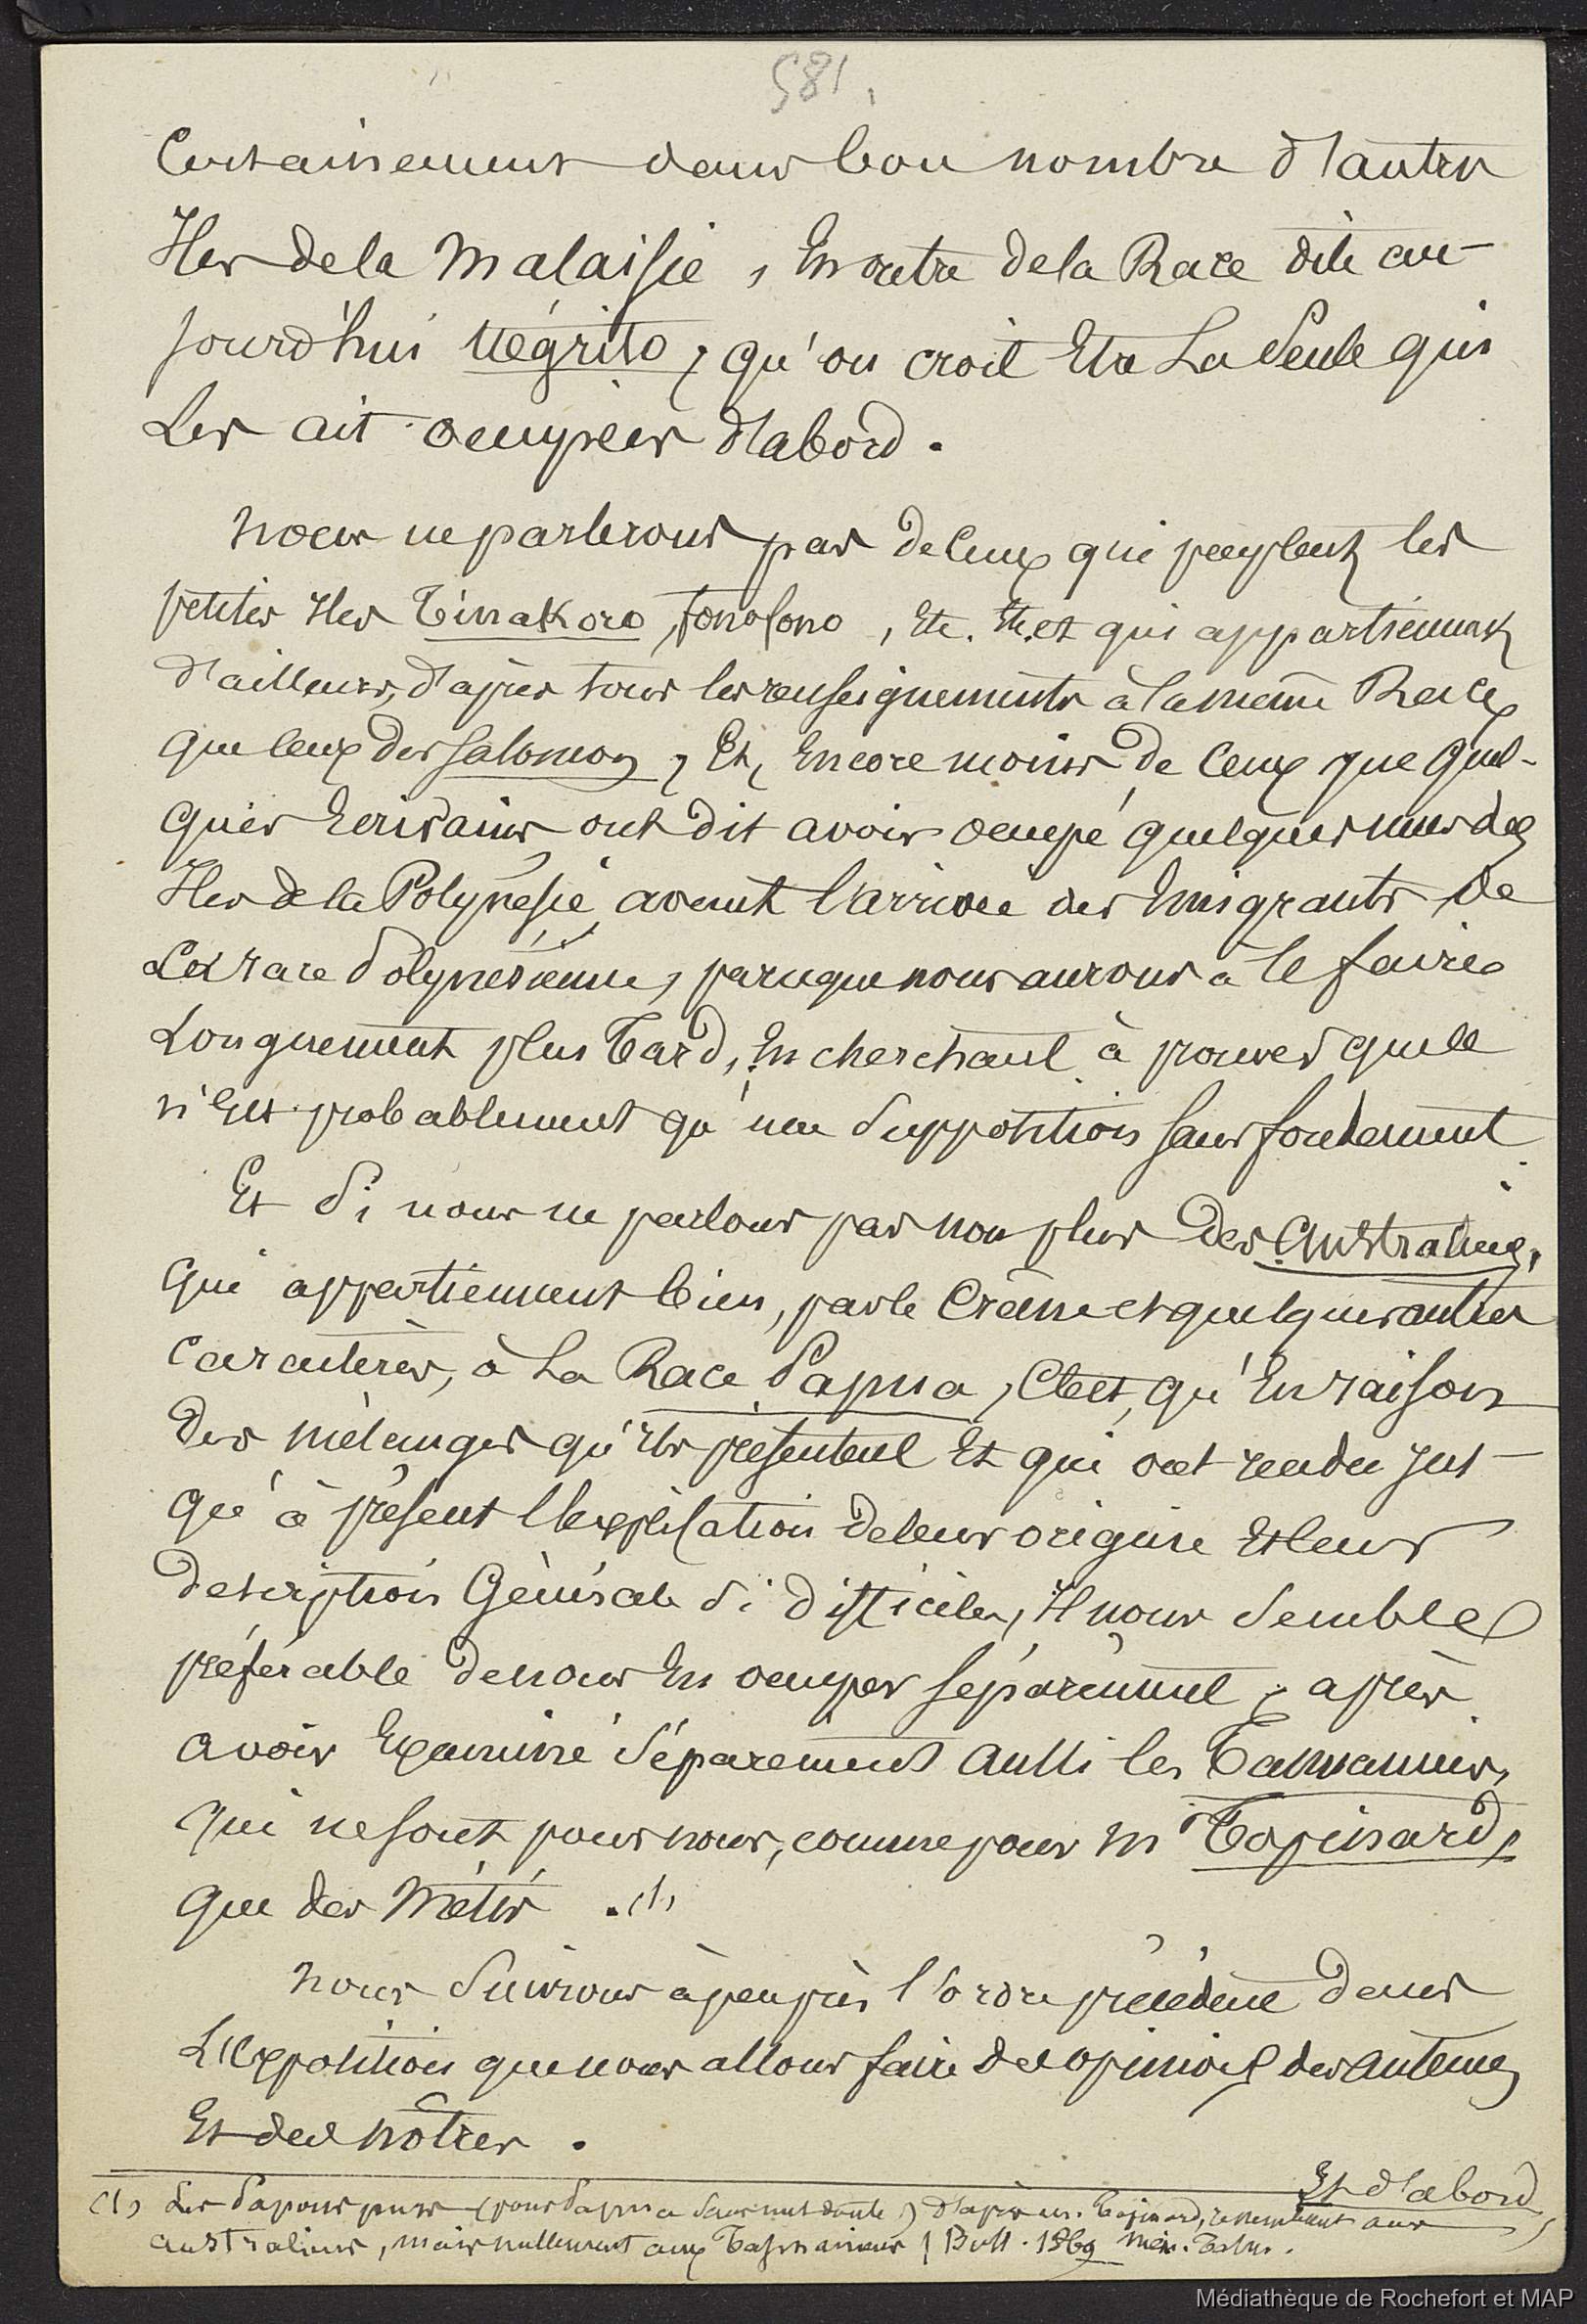 581.
Certainement dans bon nombre d'autres
Iles de la Malaisie, En outre de la Race dite au-
jourd'hui Négrito, qu'on croit Etre La Seule qui
Les ait occupées d'abord.
Nous ne parlerons pas de Ceux qui peuplent les
petites Iles Tinakoro, fonofono, Etc. Etc. et qui appartiennent
d'ailleurs, d'après tous les renseignements à la même Race
que Ceux des Salomon, Et, Encore moins de Ceux que quel-
ques Ecrivains ont dit avoir occupé quelques unes des
Iles de la Polynésie avant l'arrivée des Emigrants de
La race Polynésienne, parceque nous aurons à le faire
Longuement plus Tard, En cherchant à prouver qu'elle
n'Est probablement qu'une Supposition Sans fondement.
Et Si nous ne parlons pas non plus des Australiens,
qui appartiennent bien, par le Crâne et quelques autres
Caractères, à La Race Papua, C'est qu'En raison
Des mélanges qu'ils présentent Et qui ont rendu jus-
qu'à présent l'Explication de leur origine Et leur
description Générale Si difficiles, Il nous Semble
préférable de nous En occuper Séparément, après
avoir Examiné Séparément aussi les Tasmaniens,
qui ne sont pour nous, comme pour M Topinard,
que des Métis. (1)
Nous Suivrons à peu près l'ordre précédent dans
L'Exposition que nous allons faire des opinions des auteurs
Et des nôtres.
Et d'abord
(1) Les Papous purs (pour Papua Sans nul doute) d'après M. Topinard, ressemblent aux
Australiens, mais nullement aux Tasmaniens (Bull. 1869 Mém. Tasm.
Médiathèque de Rochefort et MAP